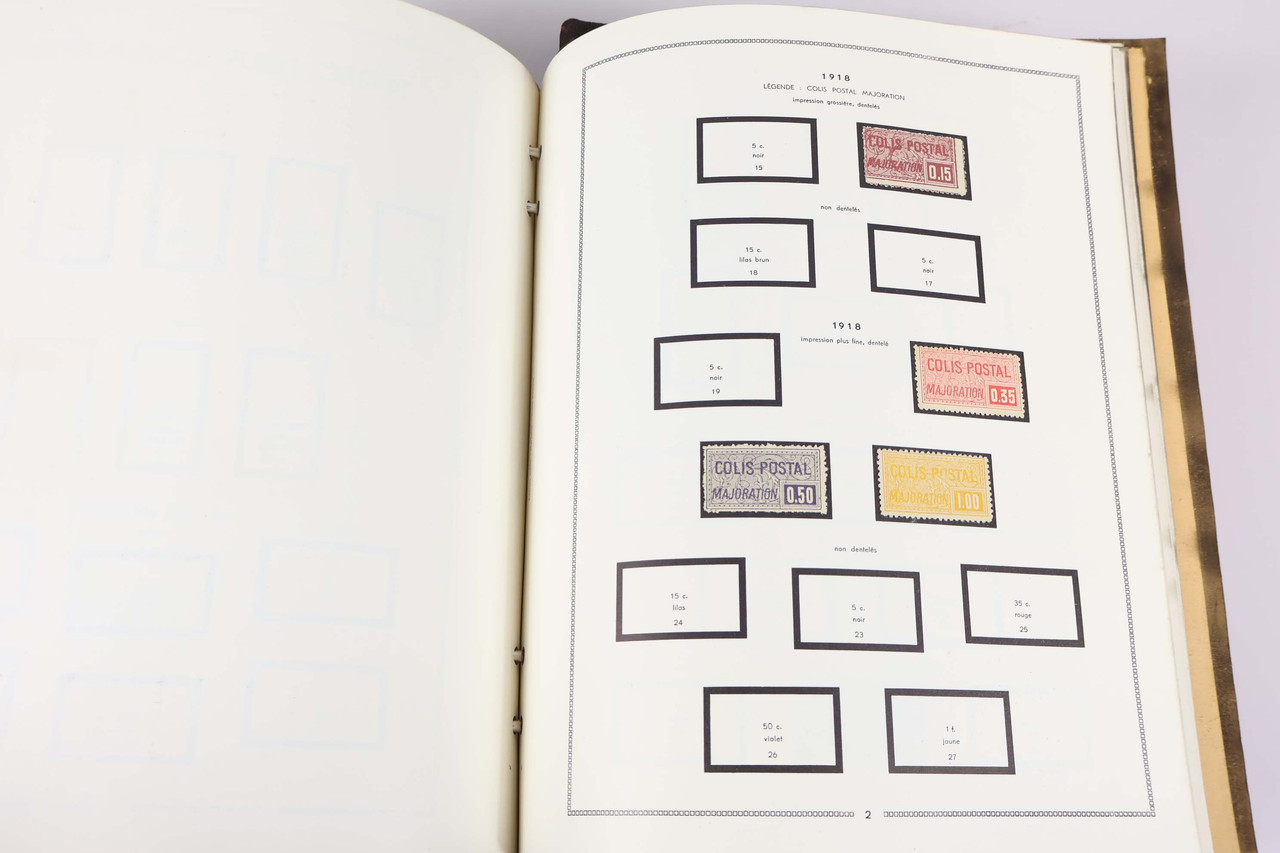 1918
LÉGENDE : COLIS POSTAL MAJORATION
impression grossière, dentelés
5 c.
noir
15
COLIS POSTAL
MAJORATION 0.15
non dentelés
15 c.
lilas brun
18
5 c.
noir
17
1918
impression plus fine, dentelé
5 c.
noir
19
COLIS POSTAL
MAJORATION 0.35
COLIS POSTAL
MAJORATION 0.50
COLIS POSTAL
MAJORATION 1.00
non dentelés
15 c.
lilas
24
5 c.
noir
23
35 c.
rouge
25
50 c.
violet
26
1 f.
jaune
27
2